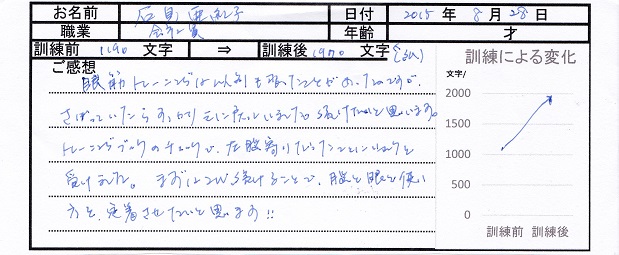 お名前 石見 日付 2015 年 8 月 28 日
職業 会社員 年齢 才
訓練前 1190 文字 ⇒ 訓練後 1970 文字
ご感想
眼筋トレーニングは以前も やったことがあったのですが、
さぼっていたら すっかり元に戻っていました。続けたいと思います。
トレーニングブックのチェックで、左脳寄り
受けました。まずは 続けることで、脳と眼の使い
方を、定着させたいと思います!!
訓練による変化
文字/
2000
1500
1000
500
0
訓練前 訓練後